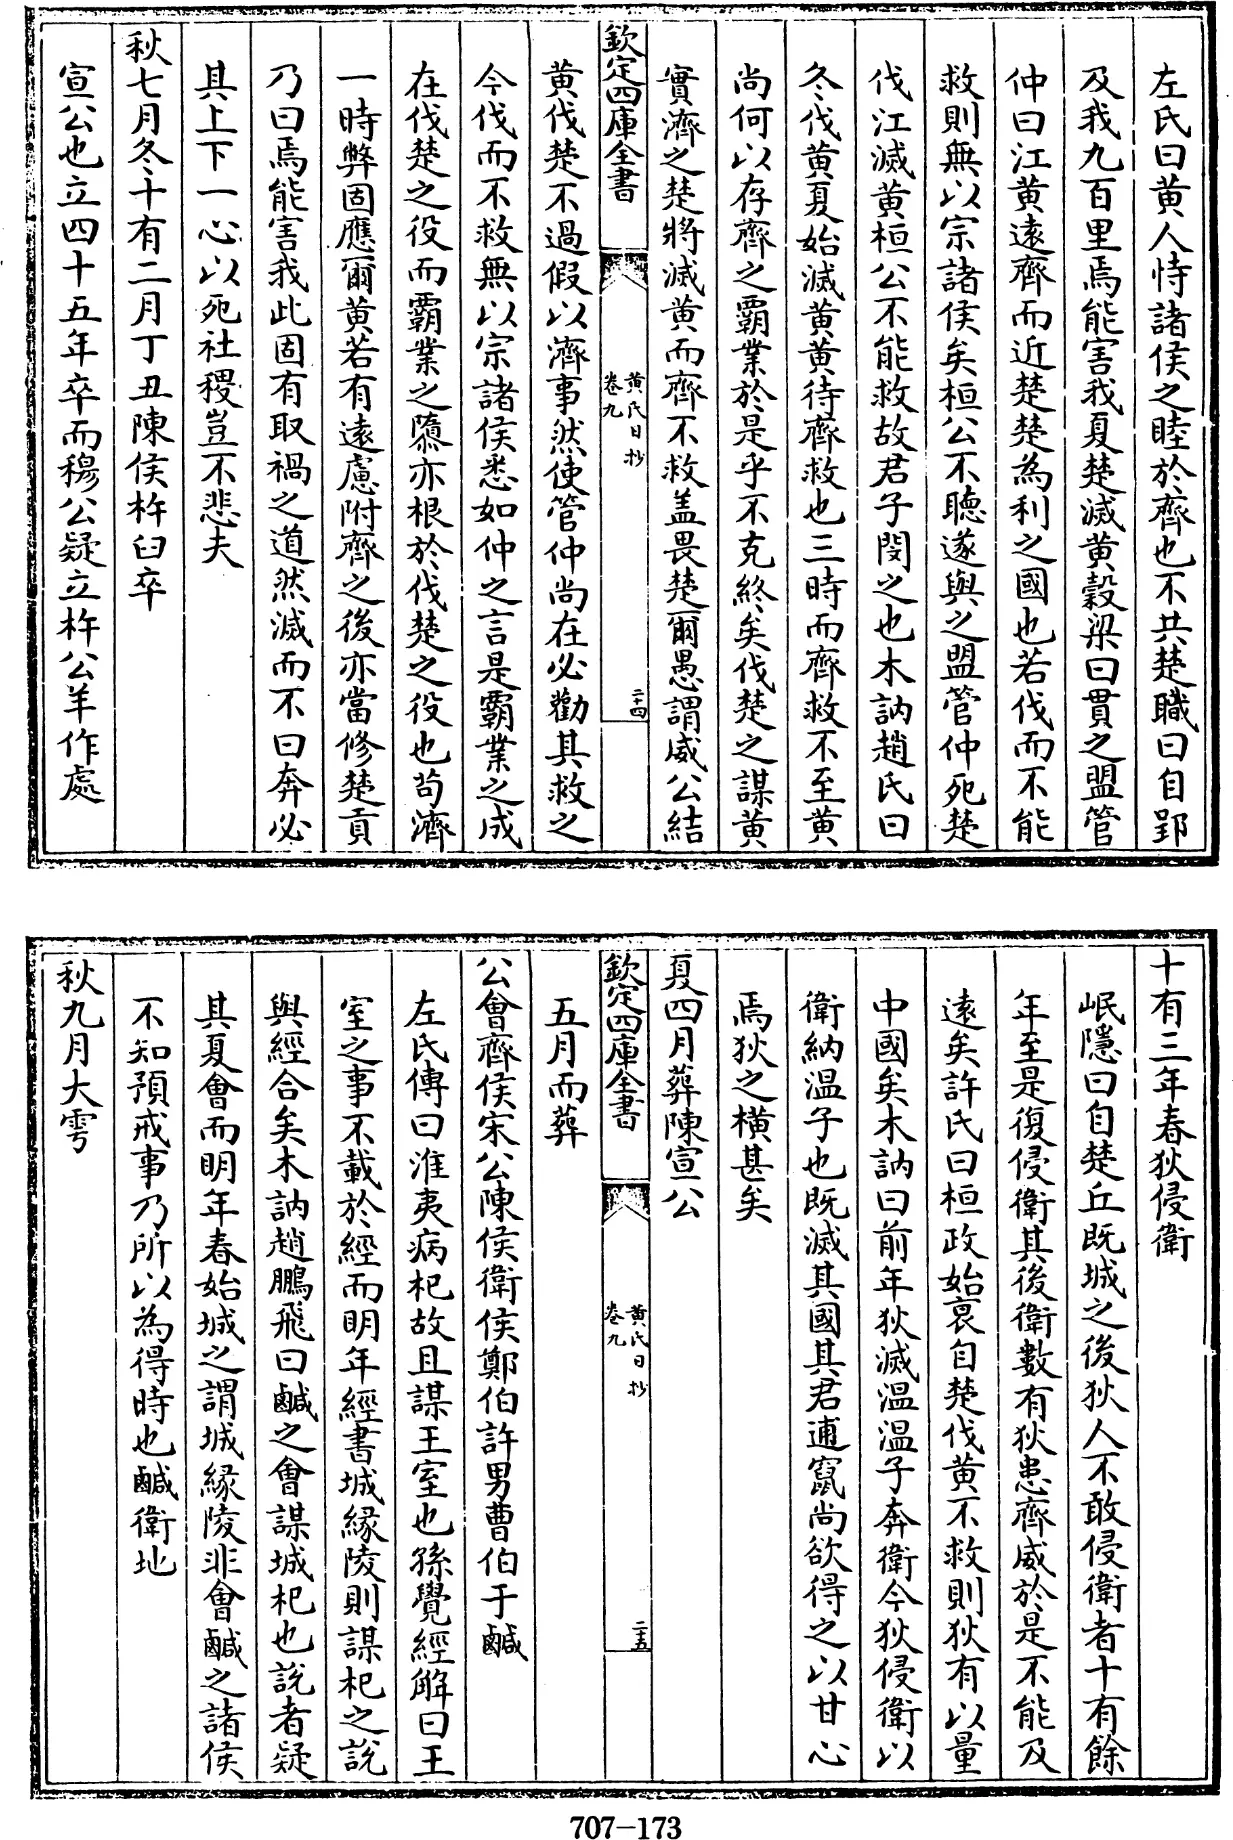 左氏曰黄人恃諸侯之睦於齊也不共楚職曰自郢
及我九百里焉能害我夏楚滅黄穀梁曰貫之盟管
仲曰江黄逺齊而近楚楚為利之國也若伐而不能
救則無以宗諸侯矣桓公不聴遂與之盟管仲死楚
伐江滅黄桓公不能救故君子閔之也木訥趙氏曰
冬伐黄夏始滅黄黄待齊救也三時而齊救不至黄
尚何以存齊之霸業於是乎不克終矣伐楚之謀黄
實濟之楚將滅黄而齊不救盖畏楚爾愚謂威公結
欽定四庫全書
黄氏日抄
卷九
二十四
黄伐楚不過假以濟事然使管仲尚在必勸其救之
今伐而不救無以宗諸侯悉如仲之言是霸業之成
在伐楚之役而霸業之隳亦根於伐楚之役也茍濟
一時弊固應爾黄若有逺慮附齊之後亦當修楚貢
乃曰焉能害我此固有取禍之道然滅而不曰奔必
其上下一心以死社稷豈不悲夫
秋七月冬十有二月丁丑陳侯杵臼卒
宣公也立四十五年卒而穆公疑立杵公羊作處
十有三年春狄侵衛
岷隱曰自楚丘既城之後狄人不敢侵衛者十有餘
年至是復侵衛其後衛數有狄患齊威於是不能及
逺矣許氏曰桓政始衰自楚伐黄不救則狄有以量
中國矣木訥曰前年狄滅温温子奔衛今狄侵衛以
衛納温子也既滅其國其君逋竄尚欲得之以甘心
焉狄之横甚矣
夏四月葬陳宣公
欽定四庫全書
黄氏日抄
卷九
二十五
五月而葬
公會齊侯宋公陳侯衛侯鄭伯許男曹伯于鹹
左氏傳曰淮夷病杞故且謀王室也孫覺經解曰王
室之事不載於經而明年經書城縁陵則謀杞之説
與經合矣木訥趙鵬飛曰鹹之會謀城杞也説者疑
其夏會而明年春始城之謂城縁陵非會鹹之諸侯
不知預戒事乃所以為得時也鹹衛地
秋九月大雩
707-173